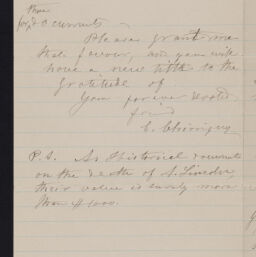 these
for documents —
Please grant me
that favour, and you will
have a new title to the
gratitude of
Your forever devoted
friend
C. Chiniquy
P. S. As Historical documents
on the death of A. Lincoln,
their value is surely more
than $1000.